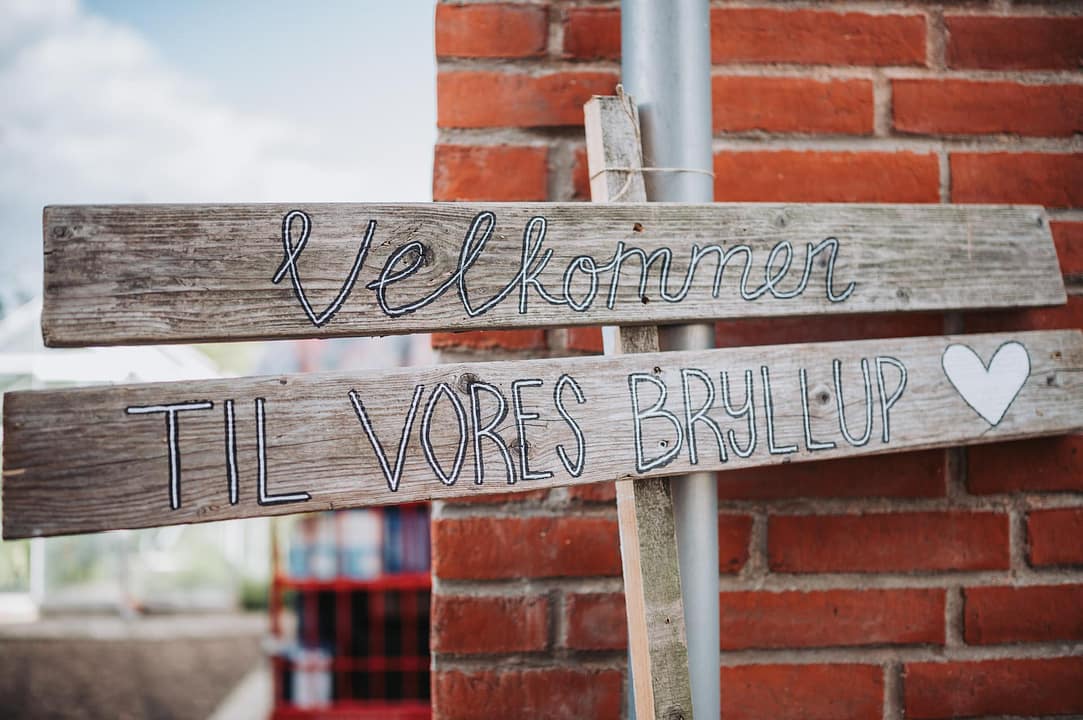 Velkommen
TIL VORES BRYLLUP